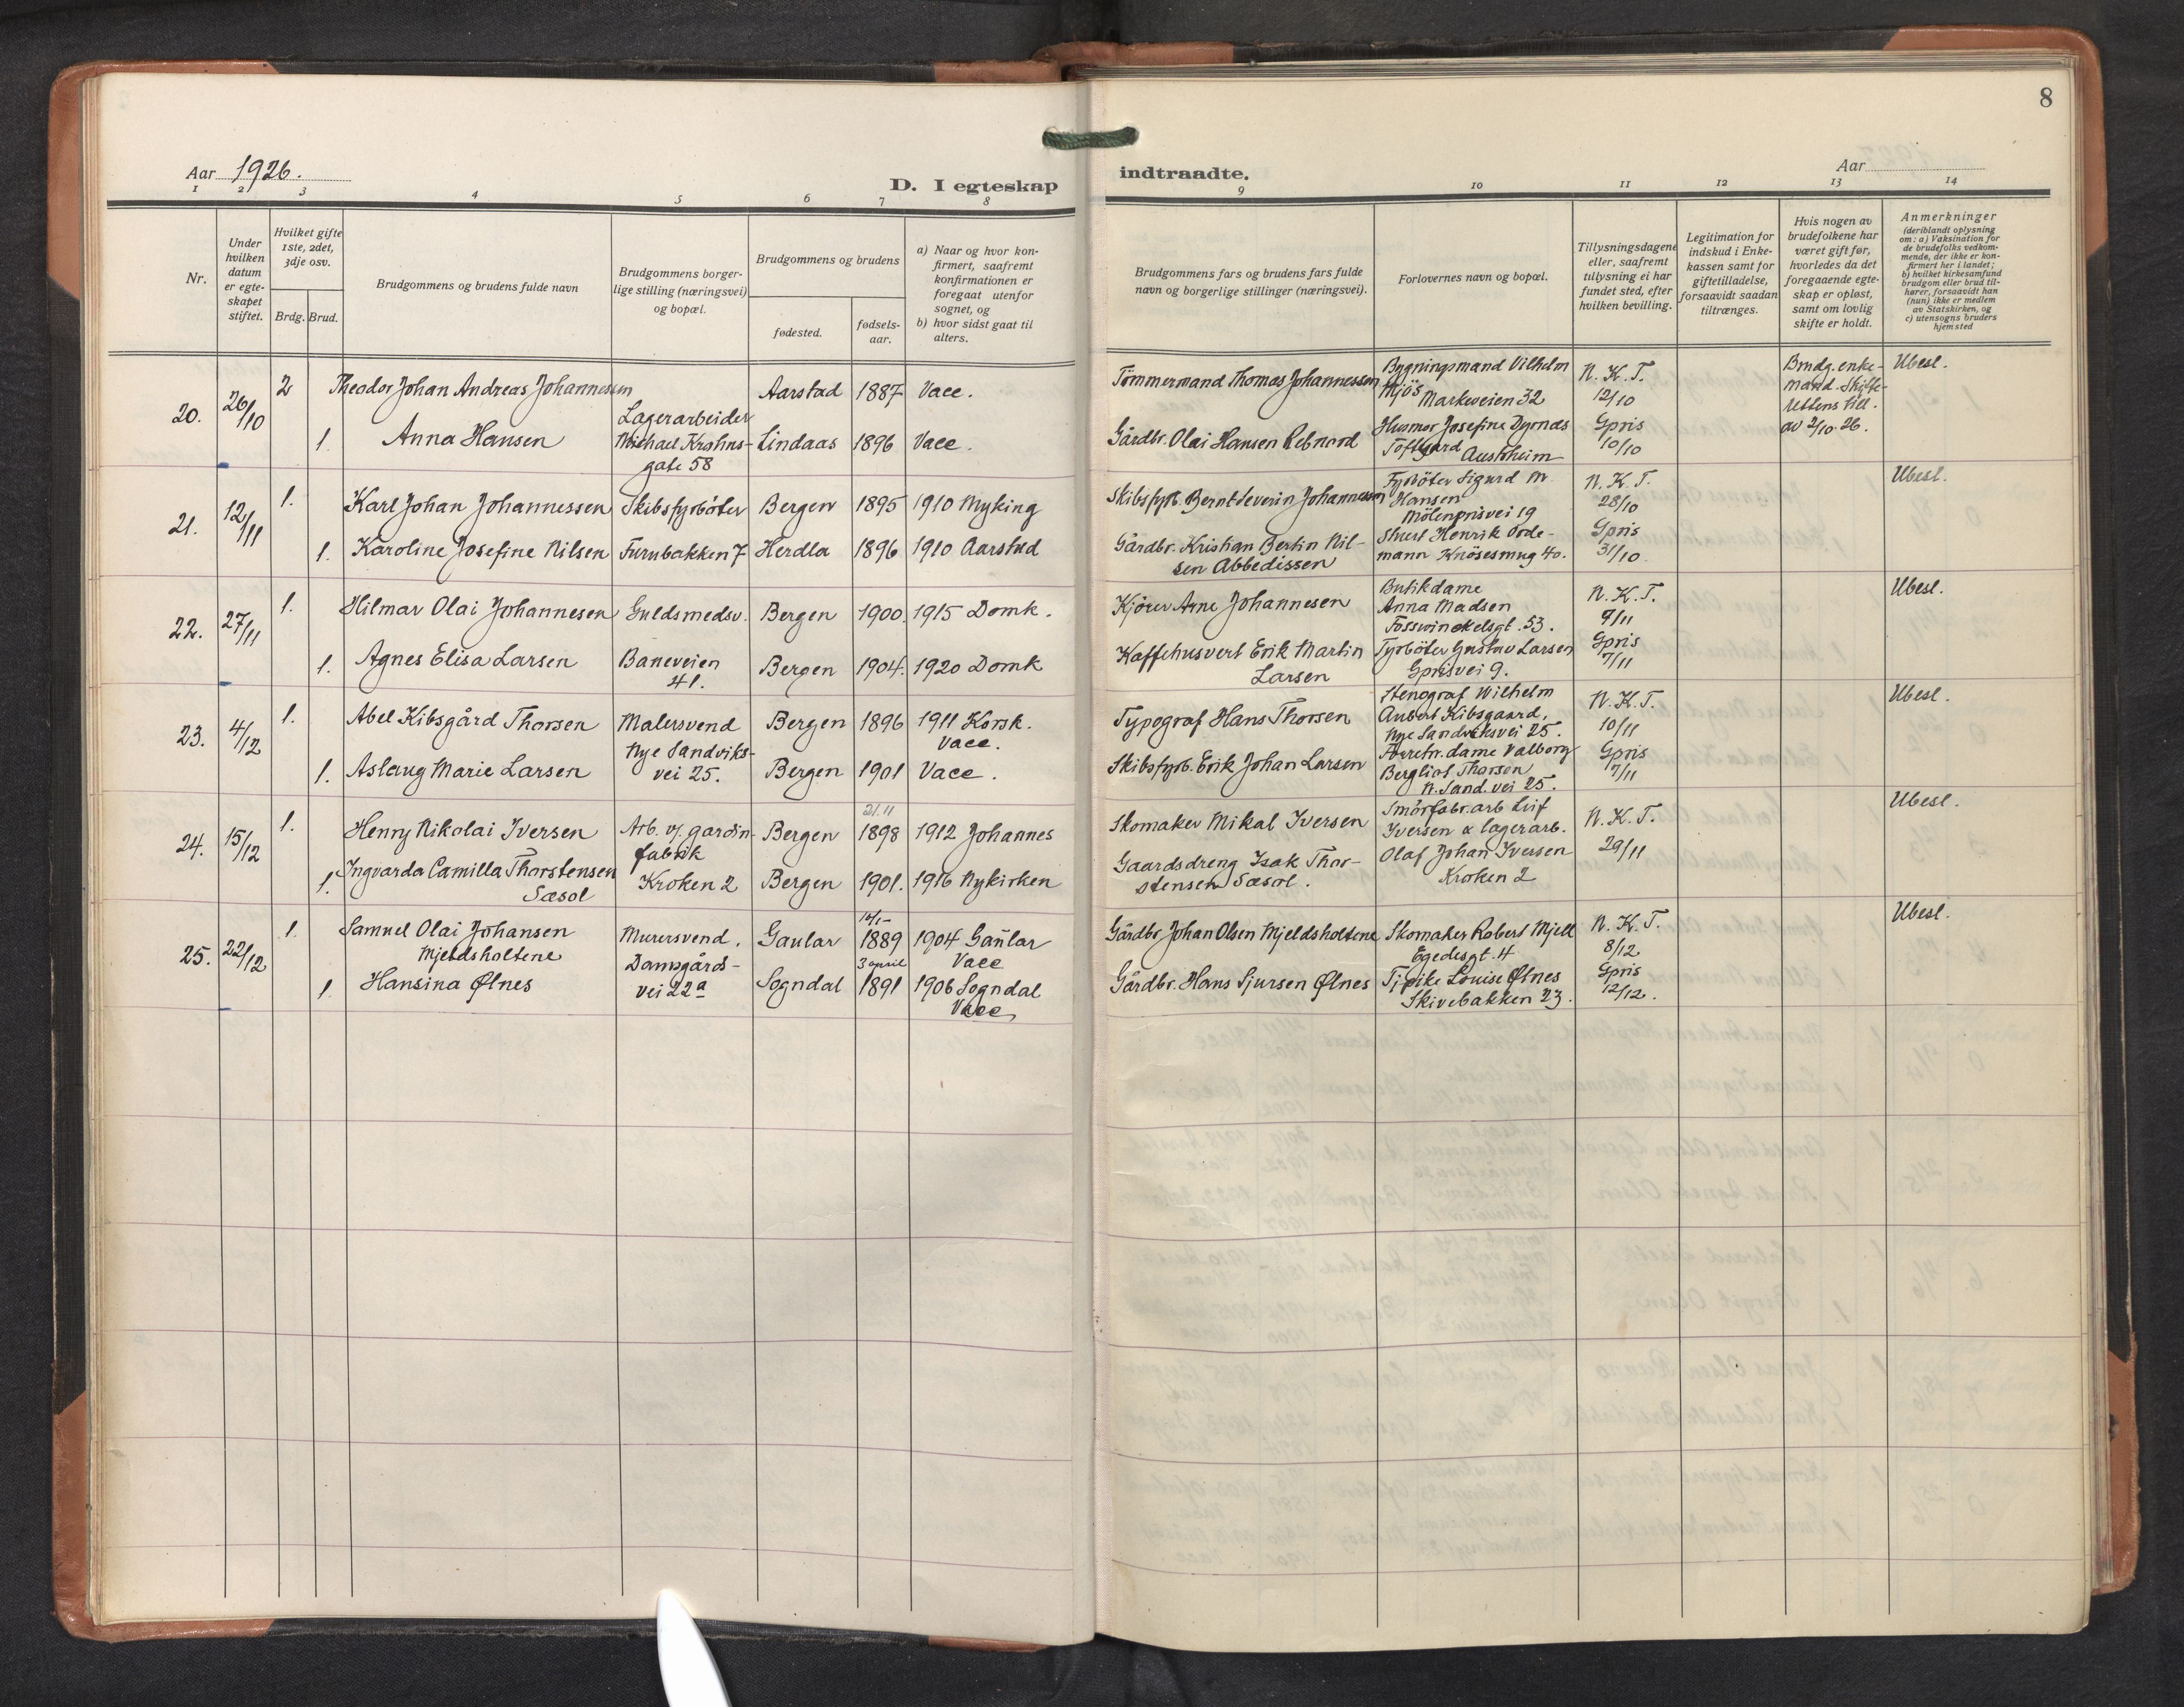 8
Aar 1926.
D. I egteskap
indtraadte.
Aar
1 2 3 4 5 6 7 8
9 10 11 12 13 14
Nr.
Under hvilken datum er egteskapet stiftet.
Hvilket gifte 1ste, 2det, 3dje osv.
Brdg. Brud.
Brudgommens og brudens fulde navn
Brudgommens borgerlige stilling (næringsvei) og bopæl.
Brudgommens og brudens
fødested.
fødselsaar.
a) Naar og hvor konfirmert, saafremt konfirmationen er foregaat utenfor sognet, og
b) hvor sidst gaat til alters.
Brudgommens fars og brudens fars fulde navn og borgerlige stillinger (næringsvei).
Forlovernes navn og bopæl.
Tillysningsdagene eller, saafremt tillysning ei har fundet sted, efter hvilken bevilling.
Legitimation for indskud i Enkekassen samt for giftetilladelse, forsaavidt saadan tiltrænges.
Hvis nogen av brudefolkene har været gift før, hvorledes da det foregaaende egteskap er opløst, samt om lovlig skifte er holdt.
Anmerkninger
(deriblandt oplysning om: a) Vaksination for de brudefolks vedkommende, der ikke er konfirmert her i landet;
b) hvilket kirkesamfund brudgom eller brud tilhører, forsaavidt han (hun) ikke er medlem av Statskirken, og
c) utensogns bruders hjemsted
20. 26/10 2 Theodor Johan Andreas Johannessen
Lagerarbeider
Michael Krohnsgate 58
Aarstad 1887 Vacc.
1. Anna Hansen Lindaas 1896 Vacc.
Tømmermand Thomas Johannessen
Gårdbr. Olai Hansen Rebnord
Bygningsmand Vilhelm
Mjøs
Markeveien 32
Husmor Josefine Dyrnæs
Toftgård Austrheim
N. K. T.
12/10
Gpris
10/10
Brudg. enkemand. Skifterettens till. av 2/10.26.
Ubesl.
21. 12/11 1. Karl Johan Johannessen Skibsfyrbøter Bergen 1895 1910 Myking
1. Karoline Josefine Nilsen Furubakken 7 Herdla 1896 1910 Aarstad
Skibsfyrb. Bernt Severin Johannessen
Gårdbr. Kristian Bertin Nilsen Abbedissen
Fyrbøter Sigurd M.
Hansen
Mölenprisvei 19
Stuert Henrik Ordemann Knøsesmug 40.
N. K. T.
28/10
Gpris
31/10.
Ubesl.
22. 27/11 1. Hilmar Olai Johannesen Guldsmedsv. Bergen 1900. 1915 Domk.
1. Agnes Elisa Larsen Baneveien 41. Bergen 1904. 1920 Domk
Kjører Arne Johannesen
Kaffehusvert Erik Martin
Larsen
Butikdame
Anna Madsen
Fosswinckelsgt. 53.
Fyrbøter Gustav Larsen
Gprisvei 9.
N. K. T.
9/11
Gpris
7/11
Ubesl.
23. 4/12 1. Abel Kibsgård Thorsen Malersvend Bergen 1896 1911 Korsk.
Vacc.
Nye Sandviksvei 25.
1. Aslaug Marie Larsen Bergen 1901 Vacc.
Typograf Hans Thorsen
Skibsfyrb. Erik Johan Larsen
Stenograf Wilhelm
Aubert Kibsgaard,
Nye Sandviksvei 25.
Forretn.dame Valborg
Bergliot Thorsen
N. Sand. vei 25.
N. K. T.
10/11
Gpris
7/11
Ubesl.
24. 15/12 1. Henry Nikolai Iversen Arb. v. gardinfabrik Bergen 21.11 1898 1912 Johannes
1. Ingvarda Camilla Thorstensen
Sæsol
Kroken 2 Bergen 1901. 1916 Nykirken
Skomaker Mikal Iversen
Gaardsdreng Isak Thorstensen Sæsol.
Smørfabr.arb Leif
Iversen & lagerarb.
Olaf Johan Iversen
Kroken 2
N. K. T.
29/11
Ubesl.
25. 22/12 1. Samuel Olai Johansen
Mjeldsholtene
Murersvend. Gaular 1889 1904 Gaular
Vacc
Damsgårdsvei 22a
1. Hansina Ølnes Sogndal 3 april 1891 1906 Sogndal
Vacc
Gårdbr. Johan Olsen Mjeldsholtene
Gårdbr. Hans Sjursen Ølnes
Skomaker Robert Mjell
Egedesgt. 4
Tjpike Louise Ølnes
Skivebakken 23.
N. K. T.
8/12
Gpris
12/12.
Ubesl.